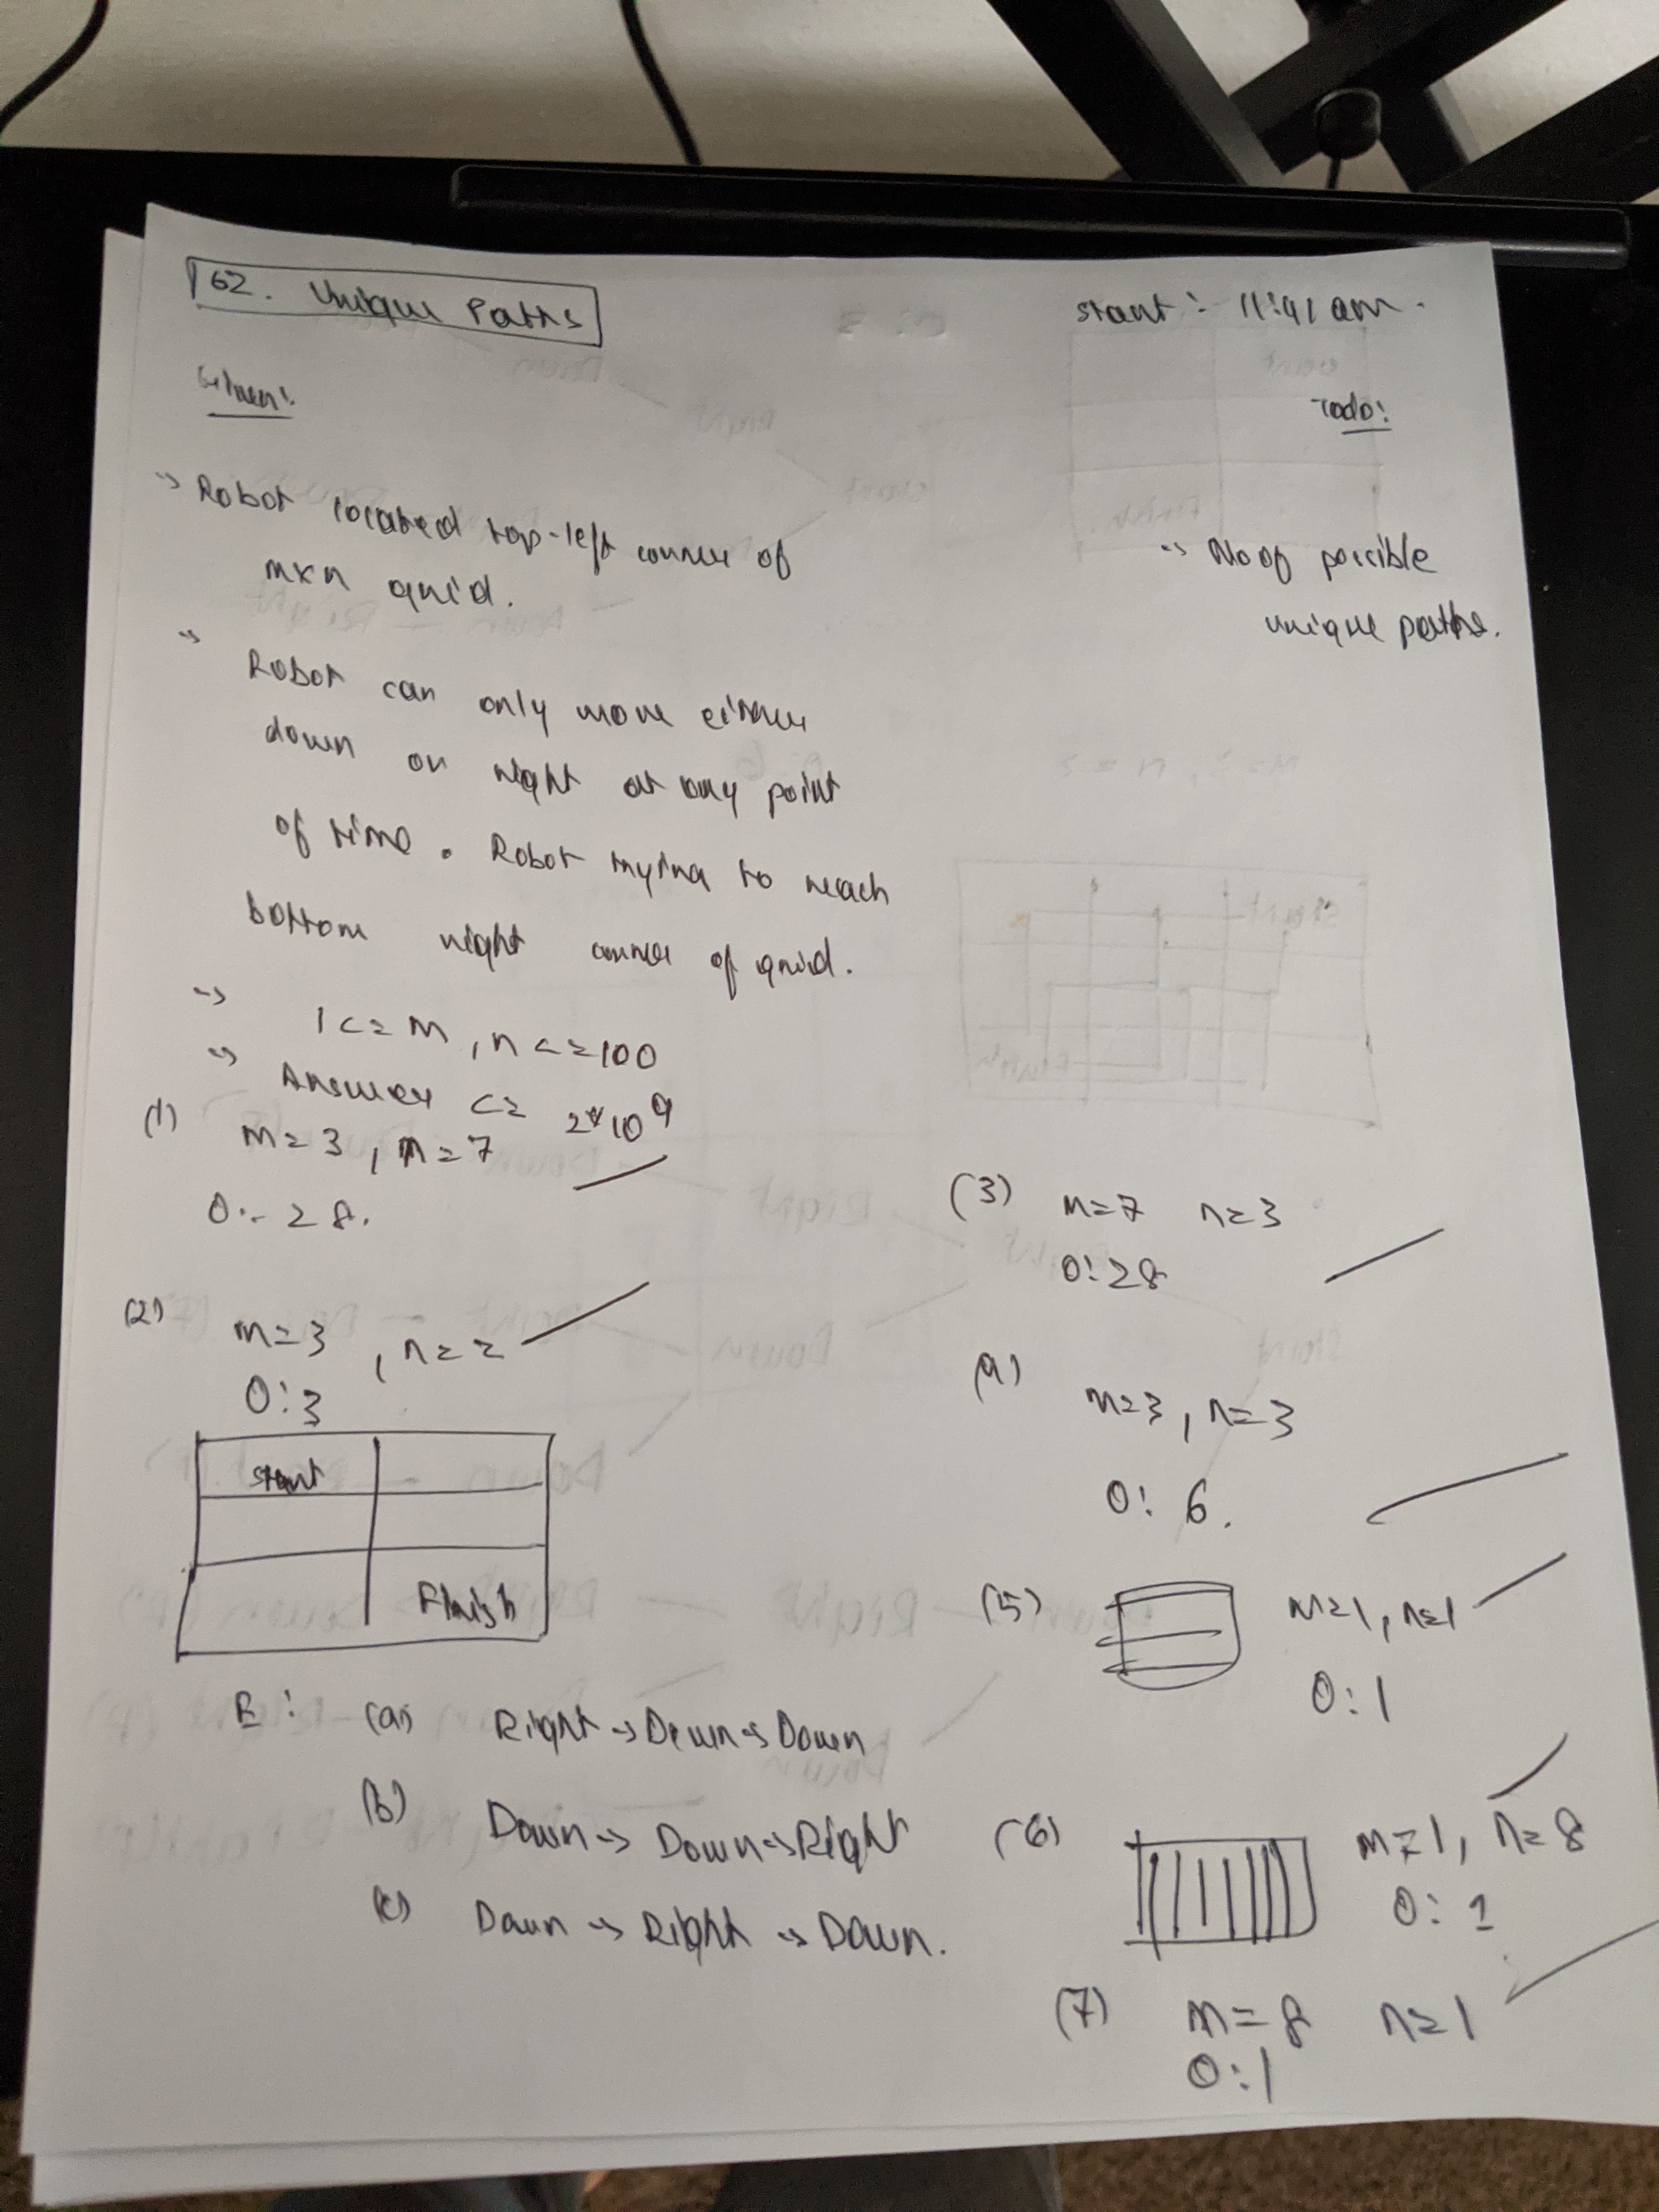 62. Unique Paths
start :- 11:41 am.
Given:
Todo:
-> Robot located top-left corner of
mxn grid.
-> No of possible
unique paths.
-> Robot can only move either
down or right at any point
of time. Robot trying to reach
bottom right corner of grid.
-> 1<=m,n<=100
-> Answer <= 2*10^9
(1) m=3, n=7
O:- 28.
(2) m=3, n=2
O:3
start
Finish
E: (a) Right->Down->Down
(b) Down->Down->Right
(c) Down->Right->Down.
(3) m=7 n=3
O:28
(4) m=3, n=3
O: 6.
(5) m=1, n=1
O:1
(6) m=1, n=8
O: 1
(7) m=8 n=1
O:1